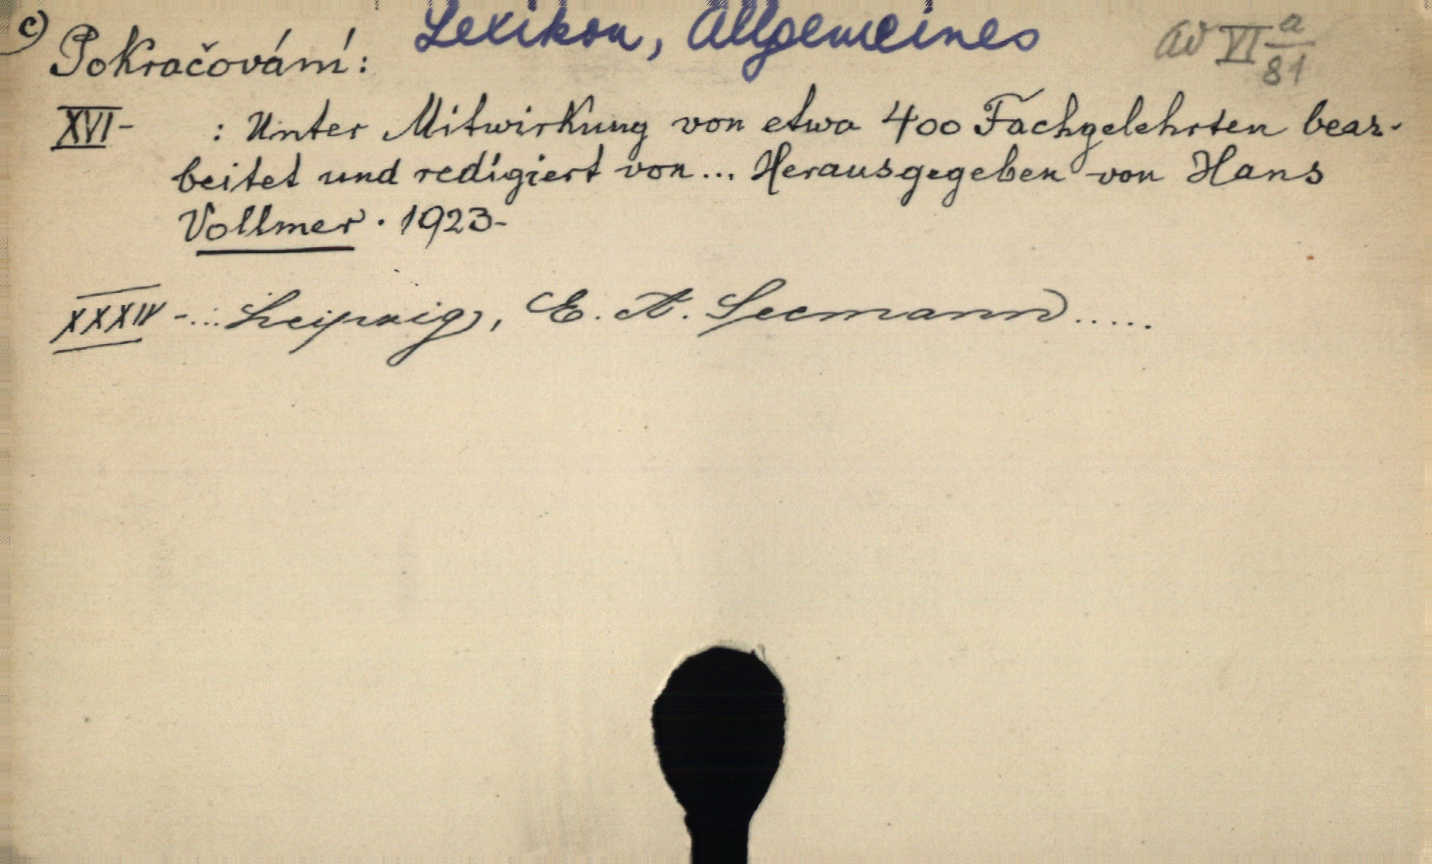 c) Pokračování: Lexikon, Allgemeines AV VI a/81
XVI- : Unter Mitwirkung von etwa 400 Fachgelehrten bear-
beitet und redigiert von... Herausgegeben von Hans
Vollmer. 1923-
XXXIV-... Leipzig, E. A. Seemann.....